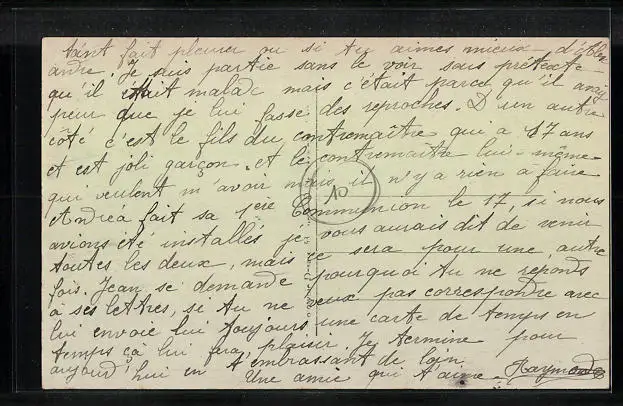 tant fait pleurer ou si tu aimes mieux d'Alex
andre. Je suis partie sans le voir sous prétexte
qu'il était malade mais c'était parce qu'il avait
peur que je lui fasse des reproches. D'un autre
côté c'est le fils du contremaître qui a 17 ans
et est joli garçon et le contremaître lui-même
qui veulent m'avoir mais il n'y a rien à faire
Andréa fait sa 1ère Communion le 17, si nous
avions été installés je vous aurais dit de venir
toutes les deux, mais ce sera pour une autre
fois. Jean se demande pourquoi tu ne réponds
à ses lettres, si tu ne veux pas correspondre avec
lui envoie lui toujours une carte de temps en
temps çà lui fera plaisir. Je termine pour
aujourd'hui en t'embrassant de loin
Une amie qui t'aime Raymonde
10